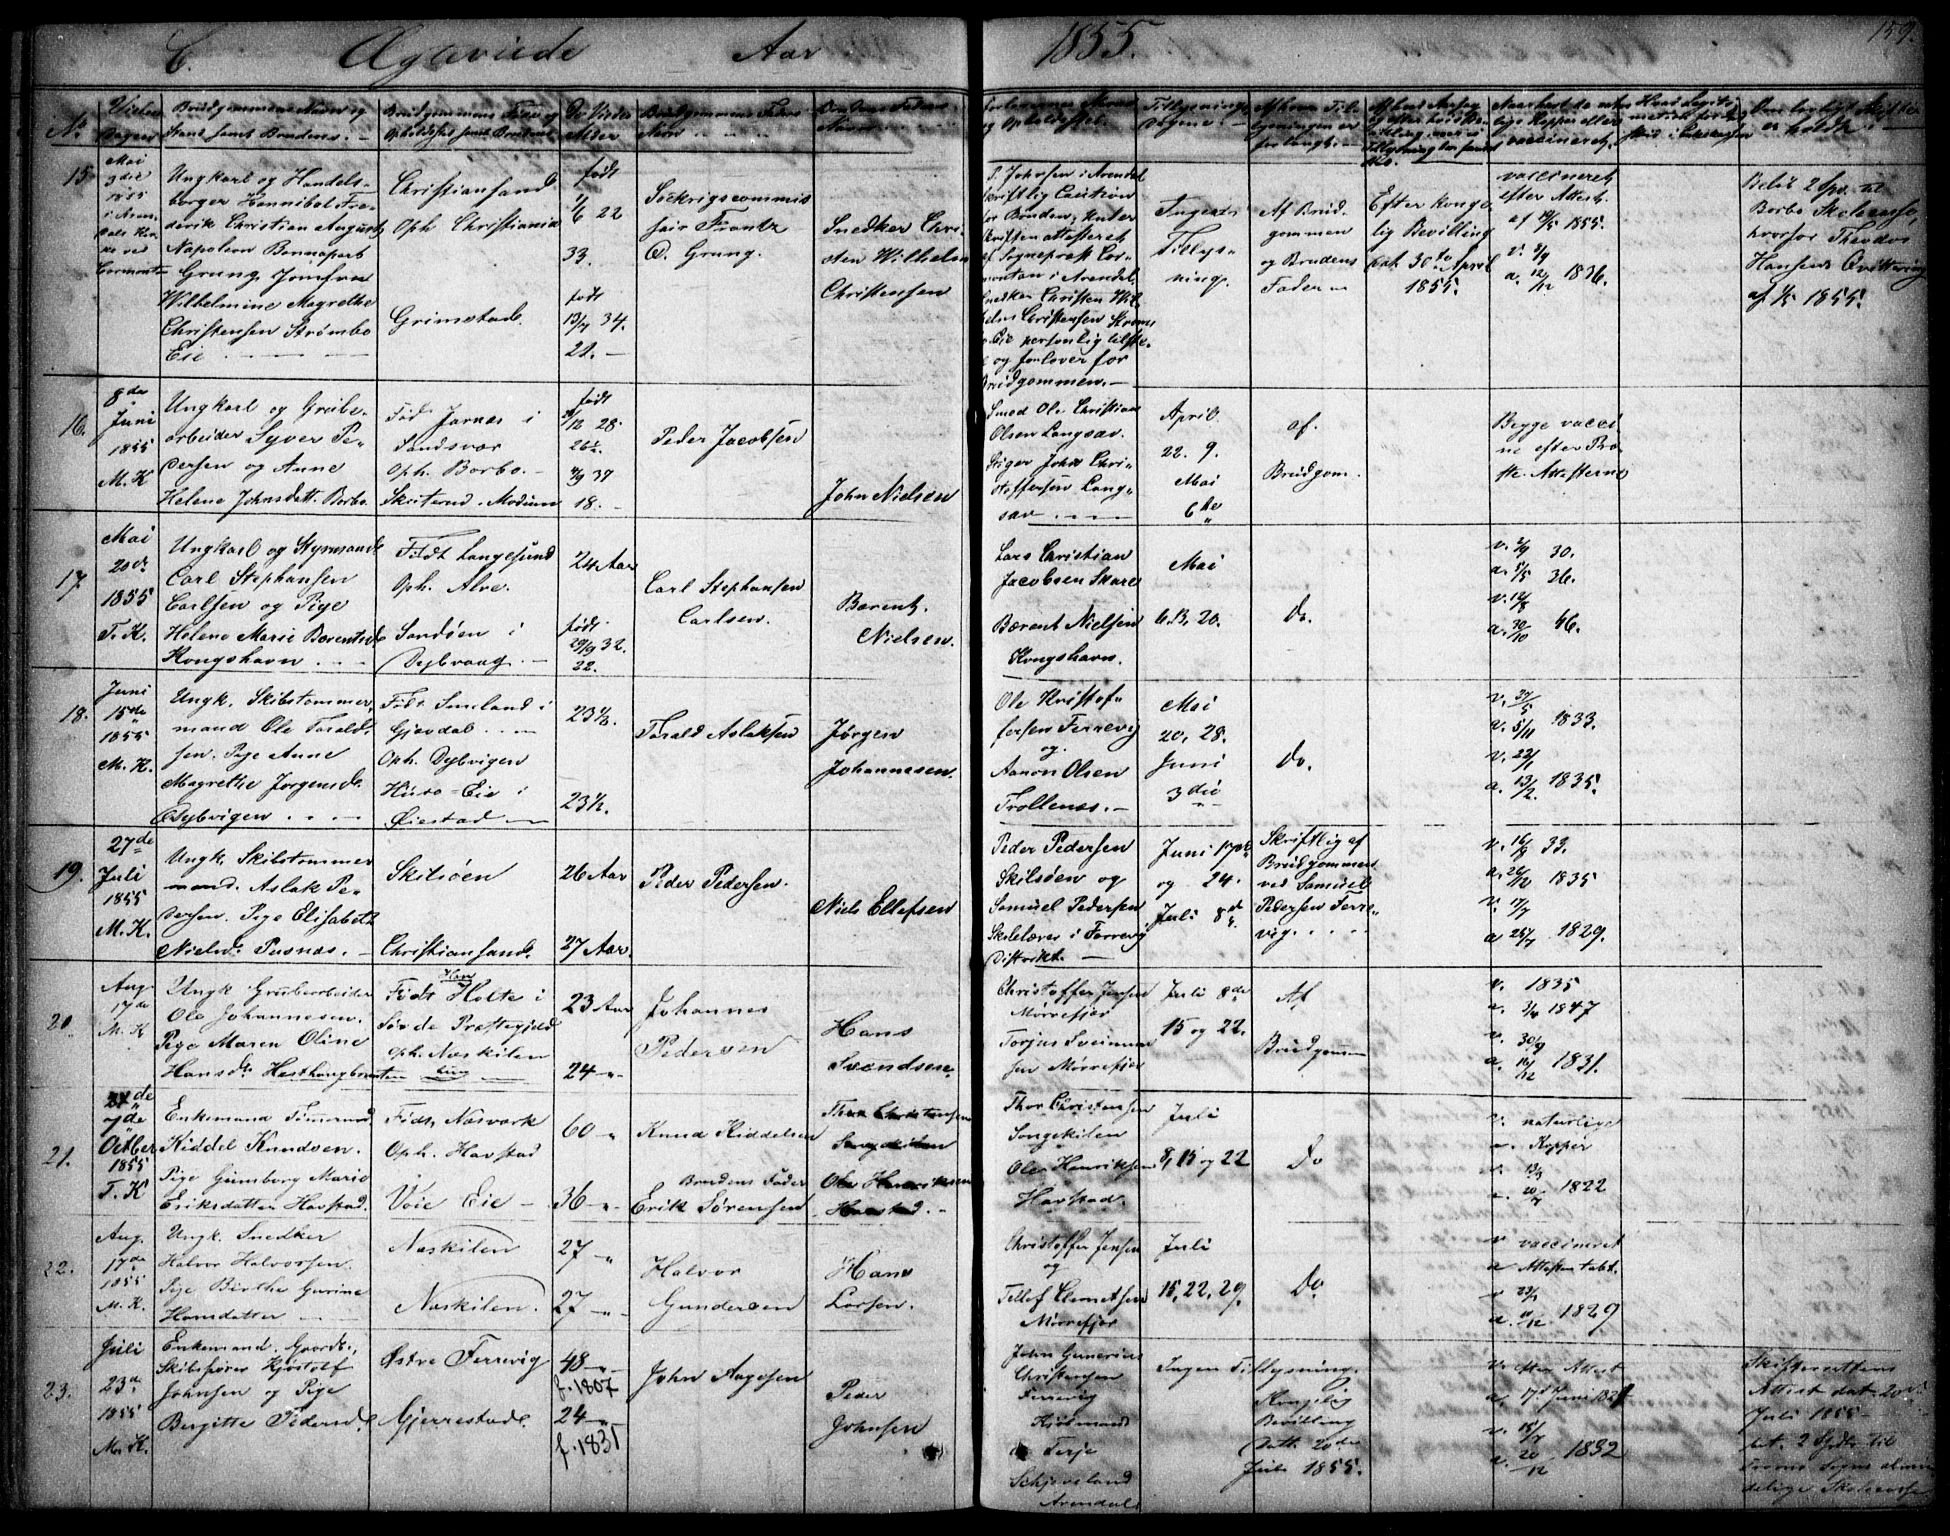 C. Ægteviede Aar 1855. 159.
No
Vielses Dagen
Brudgommens Navn og Stand samt Brudens.
Brudgommens Fødse og Opholdssted samt Brudens
De Viedes Alder
Brudgommens Faders Navn
Brudens Faders Navn
Forlovernes Navne og Opholdssted.
Tillysnings Dagene
Af hvem Tillysningen er forlangt.
15.
Mai
9die
1855
i Arendals Kirke ved
Cormontan
Ungkarl og Handels-
borger Hannibal Fre-
derik Christian August
Napoleon Bonnapart
Grung, Jomfru
Wilhelmine Magrethe
Christensen Strømbo
Eie
Christiansand
Oph. Christiania
Grimstad.
født
1/6 22
33.
født
13/7 34.
21.
Frantz
O. Grung.
Snedker Chri-
sten Wilhelm
Christensen
P. Johnsen i Arendal
skriftlig Caution
for Bruden, Under
skriften attesteret
af Sogneprest Cor-
montan i Arendal.
Snedker Christen Wil-
helm Christensen Strøms
bo Eie personlig tilste-
de og forlover for
Brudgommen.
Ingen
Tillys-
ning.
Af Brud
gommen
og Brudens
Fader
Efter Konge
lig Bevilling
dat. 30te April
1855.
vaccineret
efter Attest
af 19/5 1855.
v. 3/9
a. 12/12 1836.
Betalt 2 Spd. til
Borbo Skolecasse,
hvorfor Theodor
Hansens Qvittering
af 1/5 1855.
16.
8de
Juni
1855
M. K
Ungkarl og Grube-
arbeider Syver Pe-
dersen og Anne
Helene Johnsdatt. Borbo.
Fød. Jarnes i
Sandsvær
Oph. Borbo.
Skuterud Modum
født
28.
26½.
4/9 37
18.
Peder Jacobsen
John Nielsen
Smed Ole Christian
Olsen Langsæv.
Stiger John Chri-
stoffersen Lang-
sæv
April
22. 9.
Mai
6te
af
Brudgom.
Begge vacci
ne efter Præ
ste Attesterne
17.
Mai
20de
1855
T. K.
Ungkarl og Styrmand
Carl Stephansen
Carlsen og Pige
Helene Marie Bærentsd.
Kongshavn
Født Langesund
Oph. Alve.
Sandøen i
Dybvaag
24 Aar
født
29/9 32.
22.
Carl Stephansen
Carlsen.
Bærent
Nielsen.
Lars Christian
Jacobsen Skare
Bærent Nielsen
Kongshavn.
Mai
6. 13. 20.
Do.
v. 2/9 30.
a. 5/5 36.
v. 12/8
a. 30/10 46.
18.
Juni
15de
1855
M. K.
Ungk. Skibstømmer
mand Ole Torald-
sen. Pige Anne
Magrethe Jørgensd.
Dybvigen
Født Smeland i
Gjøvdal
Oph. Dybvigen
Huso-Eie i
Øiestad
23½.
23½.
Torald Aslaksen
Jørgen
Johannesen.
Ole Kristof-
fersen Ferrevig
og
Aanon Olsen
Trollenæs.
Mai
20, 28.
Juni
3die
Do.
a. 5/11 1833.
v. 22/1
a. 13/12. 1835.
19.
27de
Juli
1855
M. K.
Ungk. Skibstømmer
mand Aslak Pe-
dersen. Pige Elisabeth
Nielsd. Pusnæs.
Skilsøen
Christiansand.
26 Aar
27 Aar.
Peder Pedersen.
Niels Ellefsen
Peder Pedersen
Skilsøen og
Samuel Pedersen
Skolelærer i Færrevig
Distrikt.
Juni 17de
og 24.
Juli 8de
Skriftlig af
Brudgommen
ved Samuel
Pedersen Ferre-
vig
v. 16/8 33.
a. 26/12 1835
v. 17/7
a. 25/7 1829.
20.
Aug.
17de
M. K
Ungk Grubearbeider
Ole Johannesen.
Pige Maren Oline
Hansd.
Født Holte i
Præstegjeld
oph. Næskilen
23 Aar
24 -"-
Johannes
Pedersen
Hans
Svendsen
Christoffer Jensen
Mørrefjær
Torjus Sveinun
sen Mørrefjær
Juli 8de
15 og 22.
Af
Brudgommen
v. 1835
a. 3/4 1847
v. 30/9
a. 1831.
21.
7de
October
1855
T. K
Enkemand Tømmermd
Kiddel Knudsen.
Pige Gunborg Marie
Eriksdatter Havstad.
Født Næsværk
Oph. Havstad
Voie Eie
60 -"
36 -"-
Knud Kiddelsen
Brudens Fader
Erik Sørensen
Thor Christensen
Songekilen
Ole Henriksen
Havstad.
Thor Christensen
Songekilen
Ole Henriksen
Havstad.
Juli
8, 15 og 22
Do
v. naturlige
a. Kopper
v. 13/9
a. 1822
22.
Aug.
17de
1855
M. K.
Ungk. Snedker
Halvor Halvorsen.
Pige Birthe Gurine
Hansdatter
Næskilen
Næskilen.
27 -"
27 -"-
Halvor
Gundersen
Hans
Larsen.
Christoffer Jensen
og
Tellef Clemetsen
Mørrefjær
Juli
15, 22, 29.
Do.
v vaccineret
a Attesten tabt.
a. 11/12 1829
23.
Juli
23de
1855
M. K.
Enkemand. Gaardb.,
Skibsfører Kjøstolf
Johnsen og Pige
Bergitte Pedersd.
Østre Ferrevig
Gjerrestad.
48 -"-
f. 1807
24 -"-
f. 1831
John Aagesen
Peder
Johnsen
John Gunerius
Christensen
Ferrevig
Kjøbmand
Terje
Schjeveland
Arendal
Ingen Tillysning.
Kongelig
Bevilling
Datt. 20de
Juli 1855.
v. efter Attest
af 17de Juni
v. 15/7
a. 20/12 1832
Skifterettens
Attest dat. 20de
Juli 1855
bet. 2 Spdlr. til
Tromø Sogns almin
delige Skolecasse